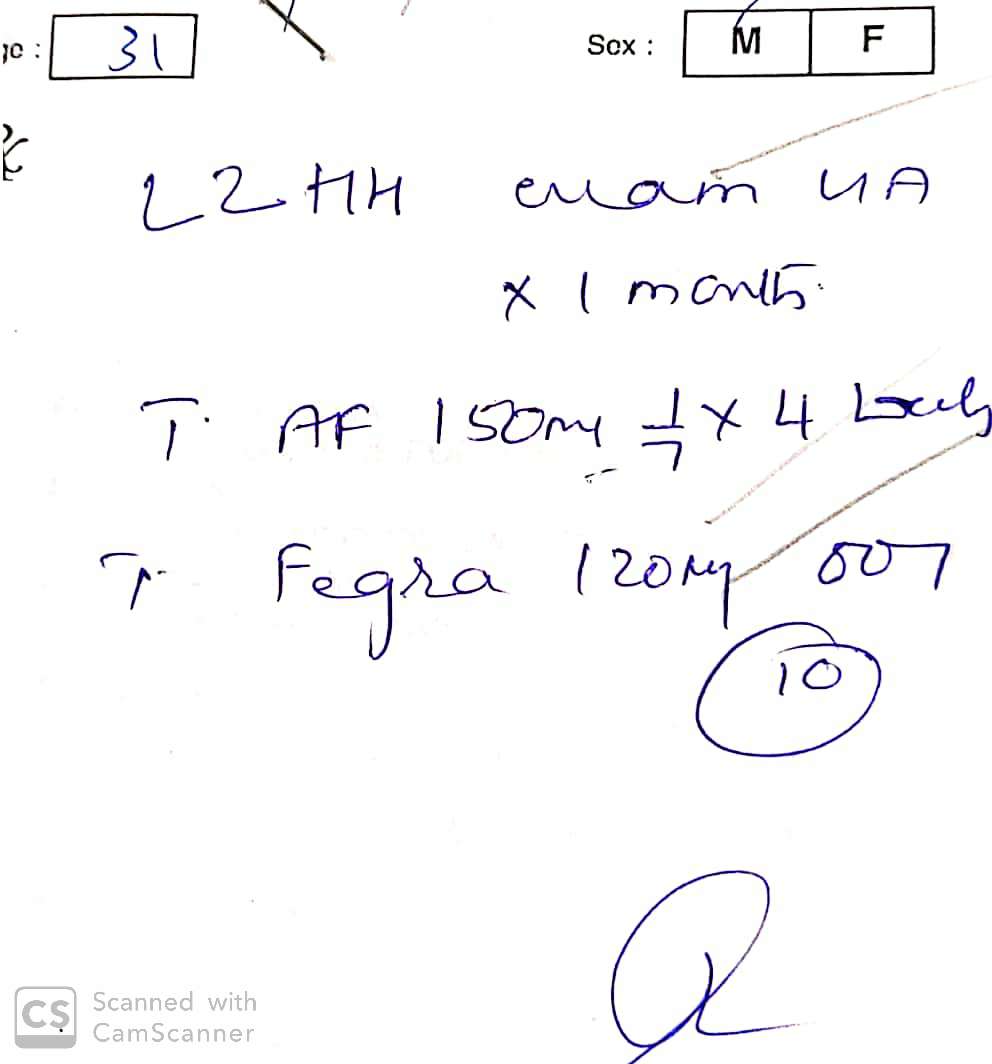 ge : 31 Sex : M F
L2HH exam UA
x 1 month
T. AF 150mg 1/7 x 4
T. Fegra 120mg 001
10
CS Scanned with
CamScanner